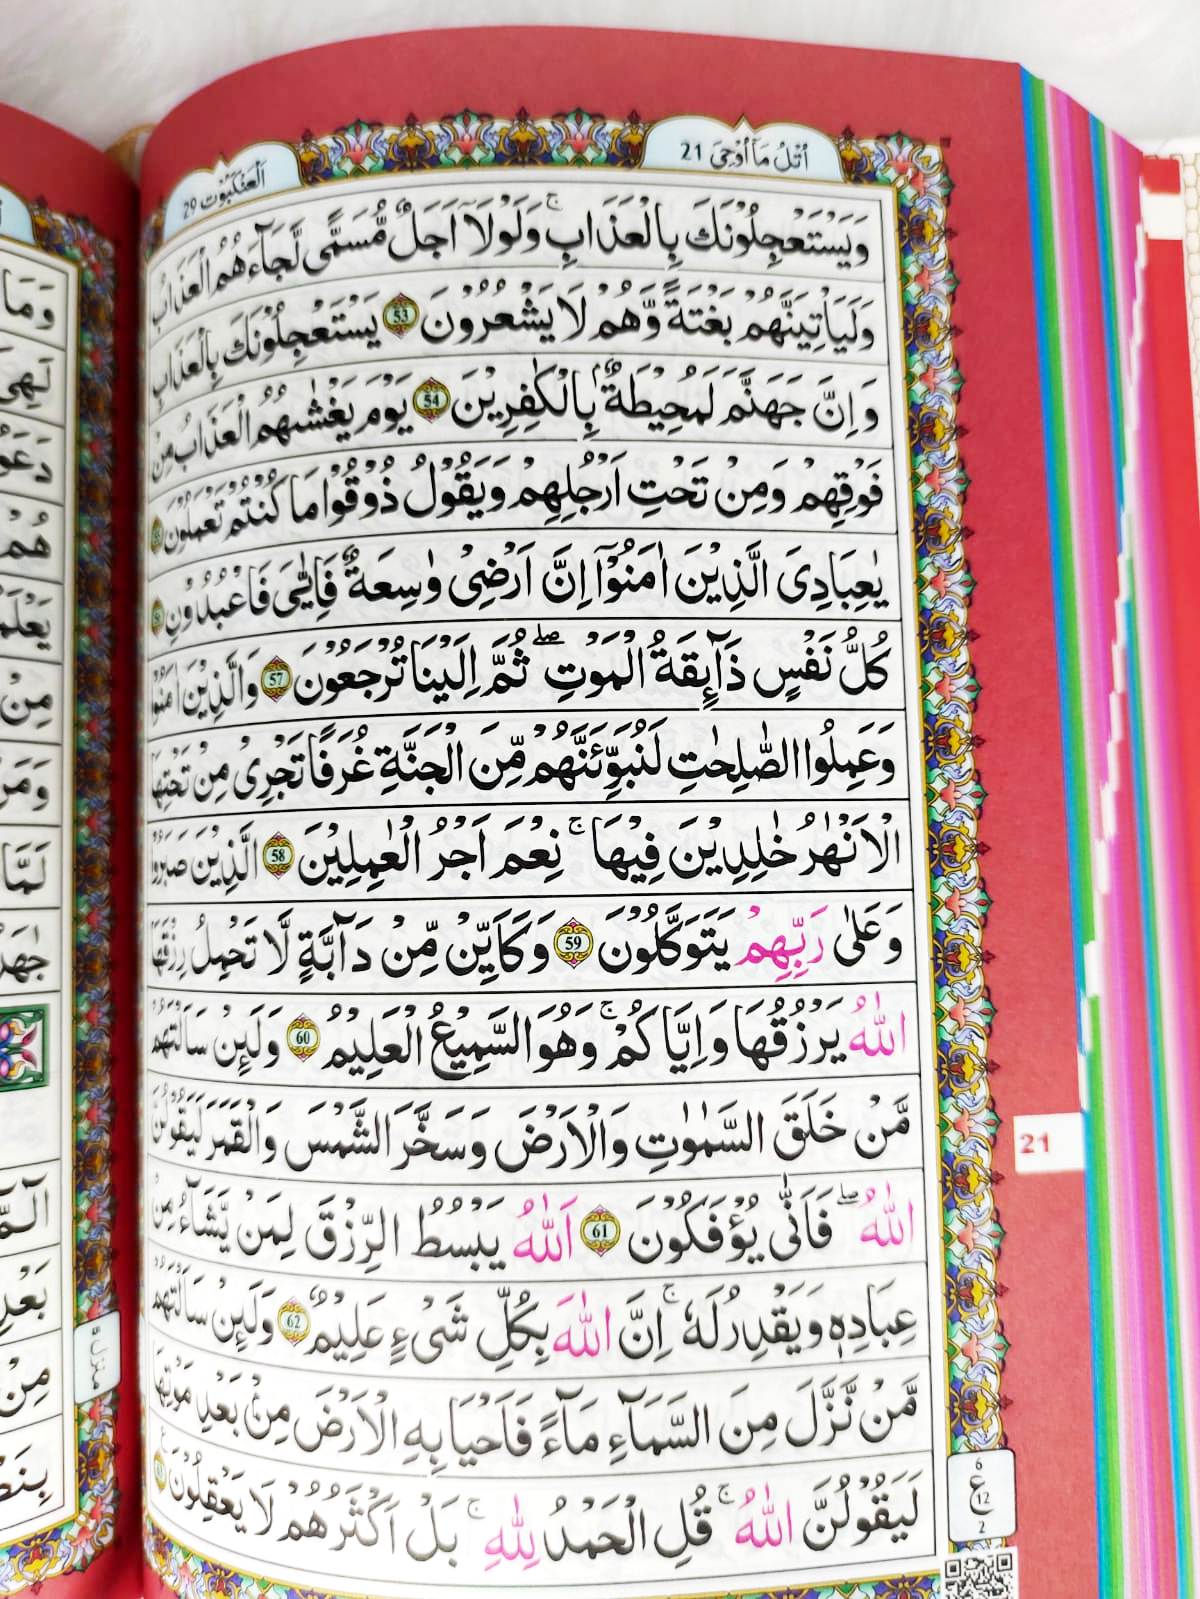 اتل ما اوحی 21
العنكبوت 29
وَيَسْتَعْجِلُوْنَكَ بِالْعَذَابِ ۚ وَلَوْلَاۤ اَجَلٌ مُّسَمًّى لَّجَآءَهُمُ الْعَذَابُ
وَلَيَاْتِيَنَّهُمْ بَغْتَةً وَّهُمْ لَا يَشْعُرُوْنَ 53 يَسْتَعْجِلُوْنَكَ بِالْعَذَابِ
وَاِنَّ جَهَنَّمَ لَمُحِيْطَةٌۢ بِالْكٰفِرِيْنَ 54 يَوْمَ يَغْشٰىهُمُ الْعَذَابُ مِنْ
فَوْقِهِمْ وَمِنْ تَحْتِ اَرْجُلِهِمْ وَيَقُوْلُ ذُوْقُوْا مَا كُنْتُمْ تَعْمَلُوْنَ
يٰعِبَادِيَ الَّذِيْنَ اٰمَنُوْۤا اِنَّ اَرْضِيْ وٰسِعَةٌ فَاِيَّايَ فَاعْبُدُوْنِ
كُلُّ نَفْسٍ ذَآئِقَةُ الْمَوْتِ ۖ ثُمَّ اِلَيْنَا تُرْجَعُوْنَ 57 وَالَّذِيْنَ اٰمَنُوْا
وَعَمِلُوا الصّٰلِحٰتِ لَنُبَوِّئَنَّهُمْ مِّنَ الْجَنَّةِ غُرَفًا تَجْرِيْ مِنْ تَحْتِهَا
الْاَنْهٰرُ خٰلِدِيْنَ فِيْهَا ۚ نِعْمَ اَجْرُ الْعٰمِلِيْنَ 58 الَّذِيْنَ صَبَرُوْا
وَعَلٰى رَبِّهِمْ يَتَوَكَّلُوْنَ 59 وَكَاَيِّنْ مِّنْ دَآبَّةٍ لَّا تَحْمِلُ رِزْقَهَا
اللّٰهُ يَرْزُقُهَا وَاِيَّاكُمْ ۚ وَهُوَ السَّمِيْعُ الْعَلِيْمُ 60 وَلَئِنْ سَاَلْتَهُمْ
مَّنْ خَلَقَ السَّمٰوٰتِ وَالْاَرْضَ وَسَخَّرَ الشَّمْسَ وَالْقَمَرَ لَيَقُوْلُنَّ
اللّٰهُ ۖ فَاَنّٰى يُؤْفَكُوْنَ 61 اَللّٰهُ يَبْسُطُ الرِّزْقَ لِمَنْ يَّشَآءُ مِنْ
عِبَادِهٖ وَيَقْدِرُ لَهٗ ۚ اِنَّ اللّٰهَ بِكُلِّ شَيْءٍ عَلِيْمٌ 62 وَلَئِنْ سَاَلْتَهُمْ
مَّنْ نَّزَّلَ مِنَ السَّمَآءِ مَآءً فَاَحْيَا بِهِ الْاَرْضَ مِنْۢ بَعْدِ مَوْتِهَا
لَيَقُوْلُنَّ اللّٰهُ ۚ قُلِ الْحَمْدُ لِلّٰهِ ۚ بَلْ اَكْثَرُهُمْ لَا يَعْقِلُوْنَ
6
ع
12
2
21
منزل ٥